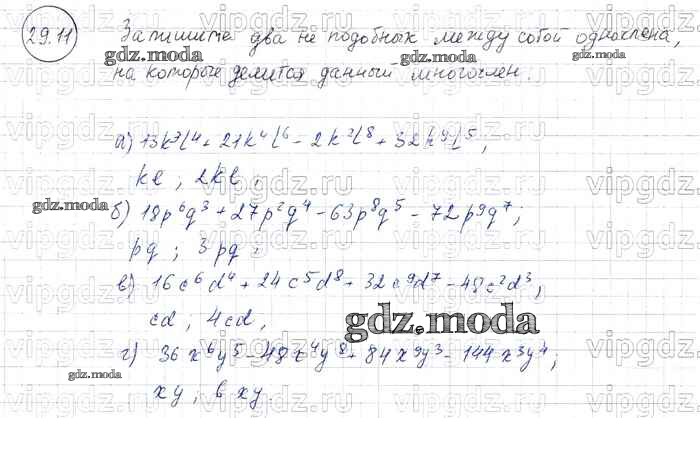 29.11
Запишите два не подобных между собой одночлена,
на которые делится данный многочлен.
а) 13k³l⁴ + 21k⁴l⁶ - 2k²l⁸ + 32k⁹l⁵;
kl ; 2kl ;
б) 18p⁶q³ + 27p²q⁴ - 63p⁸q⁵ - 72p⁹q⁷;
pq ; 3pq ;
в) 16c⁶d⁴ + 24c⁵d⁸ + 32c⁹d⁷ - 48c²d³;
cd ; 4cd,
г) 36x⁶y⁵ - 48x⁴y⁸ + 84x⁹y³ - 144x³y⁴;
xy ; в xy.
gdz.moda
vipgdz.com